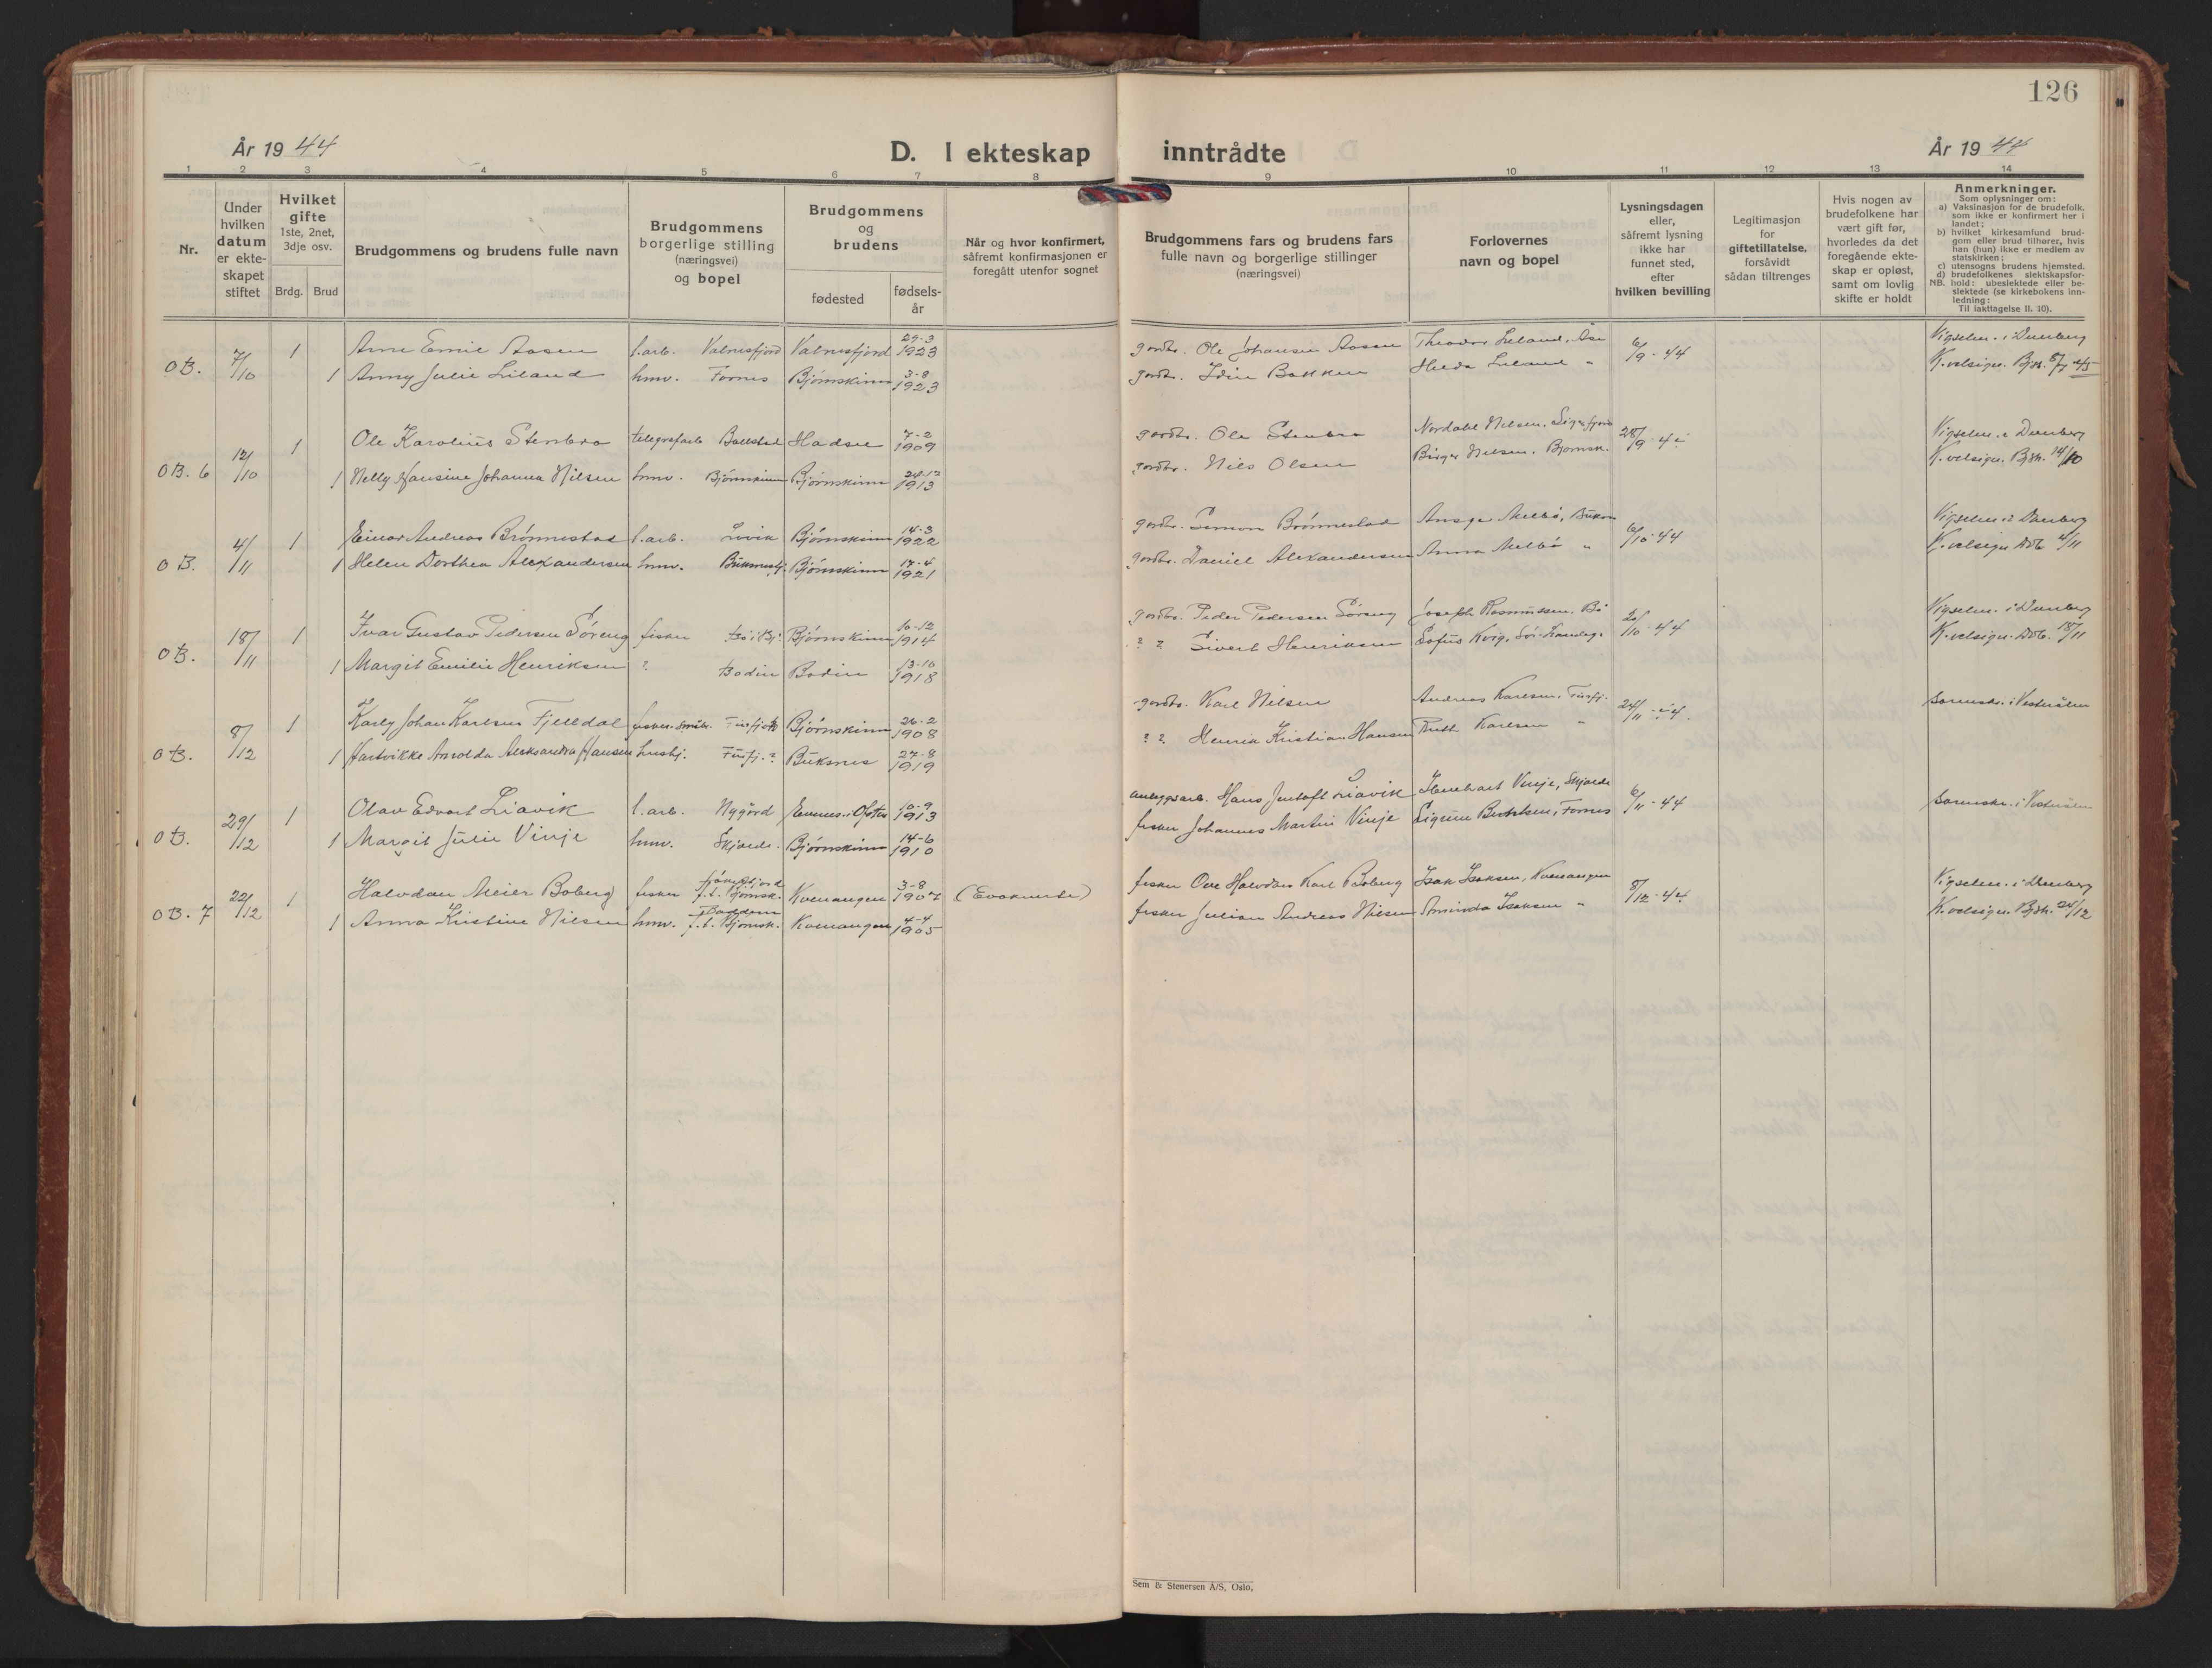 126
År 19 44
D. I ekteskap inntrådte
År 19 44
1 2 3 4 5 6 7 8 9 10 11 12 13 14
Nr.
Under
hvilken
datum
er ekte-
skapet
stiftet
Hvilket
gifte
1ste, 2net,
3dje osv.
Brdg. Brud
Brudgommens og brudens fulle navn
Brudgommens
borgerlige stilling
(næringsvei)
og bopel
Brudgommens
og
brudens
fødested
fødsels-
år
Når og hvor konfirmert,
såfremt konfirmasjonen er
foregått utenfor sognet
Brudgommens fars og brudens fars
fulle navn og borgerlige stillinger
(næringsvei)
Forlovernes
navn og bopel
Lysningsdagen
eller,
såfremt lysning
ikke har
funnet sted,
efter
hvilken bevilling
Legitimasjon
for
giftetillatelse,
forsåvidt
sådan tiltrenges
Hvis nogen av
brudefolkene har
vært gift før,
hvorledes da det
foregående ekte-
skap er opløst,
samt om lovlig
skifte er holdt
Anmerkninger.
Som oplysninger om:
a) Vaksinasjon for de brudefolk,
som ikke er konfirmert her i
landet;
b) hvilket kirkesamfund brud-
gom eller brud tilhører, hvis
han (hun) ikke er medlem av
statskirken;
c) utensogns brudens hjemsted.
d) brudefolkenes slektskapsfor-
NB. hold: ubeslektede eller be-
slektede (se kirkebokens inn-
ledning:
Til iakttagelse II. 10).
OB. 7/10 1 Arne Emil Aasen l.arb. Valnesfjord Valnesfjord 29-3 1923 gardbr. Ole Johansen Aasen Theodor Leland, Åse 6/9-44 Vigselm. i Dverberg
1 Anny Julie Liland hmv. Fornes Bjørnskinn 3-8 1923 gardbr. Idin Bakken Hilda Leland " K.velsign. Bjsk.
OB. 6 12/10 1 Ole Karolius Stenbro telegrafarb. Ballstad Hadsel 7-2 1909 gardbr. Ole Stenbro Nordahl Nilsen, Sigerfjord 28/9-44 Vigselm. i Dverberg
1 Nelly Hansine Johanna Nilsen hmv. Bjørnskinn Bjørnskinn 24-12 1913 gardbr. Nils Olsen Birger Nilsen, Bjørnsk. K.velsign. Bjsk. 14/10
OB. 4/11 1 Einar Andreas Brønnestad l.arb. Lovik Bjørnskinn 14-3 1922 gardbr. Simon Brønnestad 6/10-44 Vigselm. i Dverberg
1 Helen Dorthea Alexandersen hmv. Bjørnskinn 17-4 1921 gardbr. Daniel Alexandersen Anna Melbö " K.velsign. 4/11
OB. 18/11 1 Ivar Gustav Pedersen Söreng fisker Bjørnskinn 10-12 1914 gardbr. Peder Pedersen Söreng Joseph Rasmussen, Bö 20/10-44 Vigselm. i Dverberg
1 Margit Emilie Henriksen ? Bodin Bodin 13-10 1918 ? ? Sivert Henriksen K.velsign. 18/11
OB. 8/12 1 Karly Johan Karlsen Fjelldal Bjørnskinn 26-2 1908 gardbr. Karl Nilsen Andreas Karlsen, 24/11-44. Sorenskr. i Vesterålen
1 Hartvikke Arnolda Aleksandra Hansen hushj. Buksnes 27-8 1919 ? ? Henrik Kristian Hansen Ruth Karlsen "
OB. 29/12 1 Olav Edvart Liavik l.arb. Nygård Evenes i Ofoten 10-9 1913 anleggsarb. Hans Jentoft Liavik Vinje, 6/11-44 Sorenskr. i Vesterålen
1 Margit Julie Vinje hmv. Bjørnskinn 14-6 1910 fisker Johannes Martin Vinje Sigrun Bertelsen, Fornes
OB. 7 22/12 1 Halvdan Meier Boberg fisker f.t. Bjørnsk. Kvenangen 3-8 1907 (Evakuerte) fisker Ove Halvdan Karl Boberg Isak Isaksen, Kvenangen 8/12-44 Vigselm. i Dverberg
1 Anna Kristine Nilsen hmv. f.t. Bjørnsk. Kvenangen 4-4 1905 fisker Julian Andreas Nilsen Isaksen " K.velsign. Bjsk. 24/12
Sem & Stenersen A/S, Oslo,